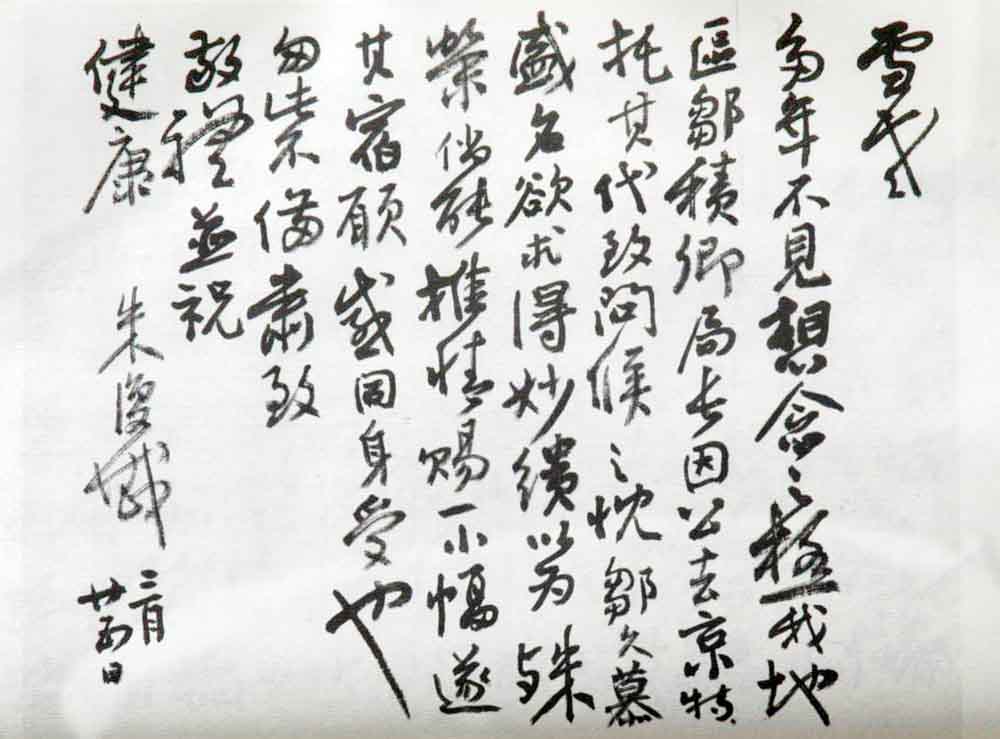 雪
多年不見想念之極我地
區鄒積卿局長因公去京特
托其代致問候之忱鄒久慕
盛名欲求得妙繢以为殊
榮倘能推情賜一小幅遂
其宿願感同身受也
匆此不備肅致
敬禮並祝
健康
朱復戡
二月
廿五日